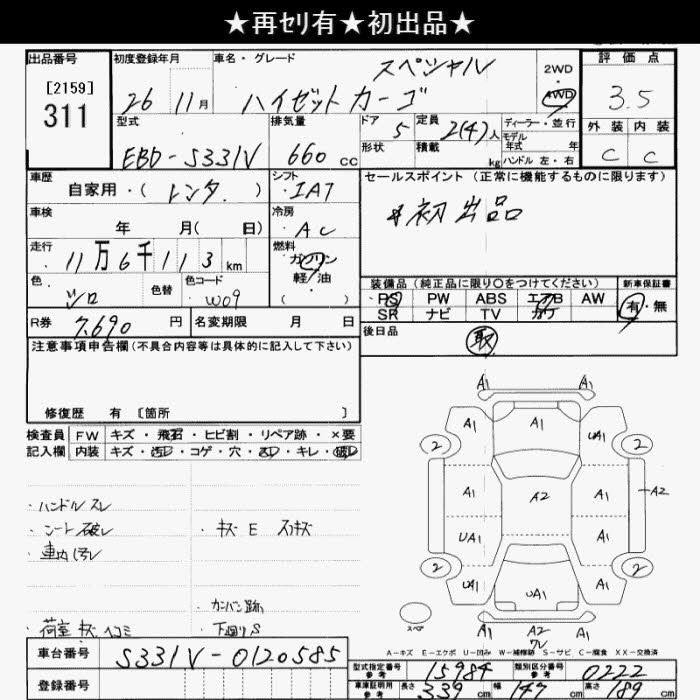 ★再セリ有★初出品★
出品番号 初度登録年月 車名・グレード 評価点
[2159]
311
26 11月 ハイゼット カーゴ スペシャル 2WD・4WD 3.5
型式 排気量 ドア 定員 ディーラー・並行 外装 内装
EBD-S331V 660cc 5 2(4)人 モデル年式 年 C C
形状 積載 kg ハンドル 左・右
車歴 シフト セールスポイント(正常に機能するものに限ります)
自家用・(レンタ) IAT
*初出品
車検 冷房
年 月( 日) AC
走行 燃料
11万6千113km ガソリン
軽/油
( )
色 色替 色コード
シロ W09
装備品(純正品に限り○をつけてください) 新車保証書
PS PW ABS エアB AW 有・無
SR ナビ TV カワ
R券 7,690円 名変期限 月 日
後日品 取
注意事項申告欄(不具合内容等は具体的に記入して下さい)
修復歴 有 [箇所 ]
検査員 FW キズ・飛石・ヒビ割・リペア跡・×要
記入欄 内装 キズ・汚レ・コゲ・穴・スレ・キレ・破レ
・ハンドル スレ
・シート 破レ ・キズ E スリキズ
・車内 汚レ
・カンバン跡
・荷室 キズ ヘコミ ・下廻りS
A1 A1
A1 A1 UA1
2 2
A1 A2 A1 A2
UA1 A1
2 2
UA1 UA1 A1
スペア
A1 A2 A1
ワレ
A-キズ E-エクボ U-凹み W-補修跡 S-サビ C-腐食 XX-交換済
車台番号 S331V-0120585
登録番号
型式指定番号 参考 15984 類別区分番号 参考 0222
車庫証明用 参考 長さ 339cm 幅 147cm 高さ 189cm